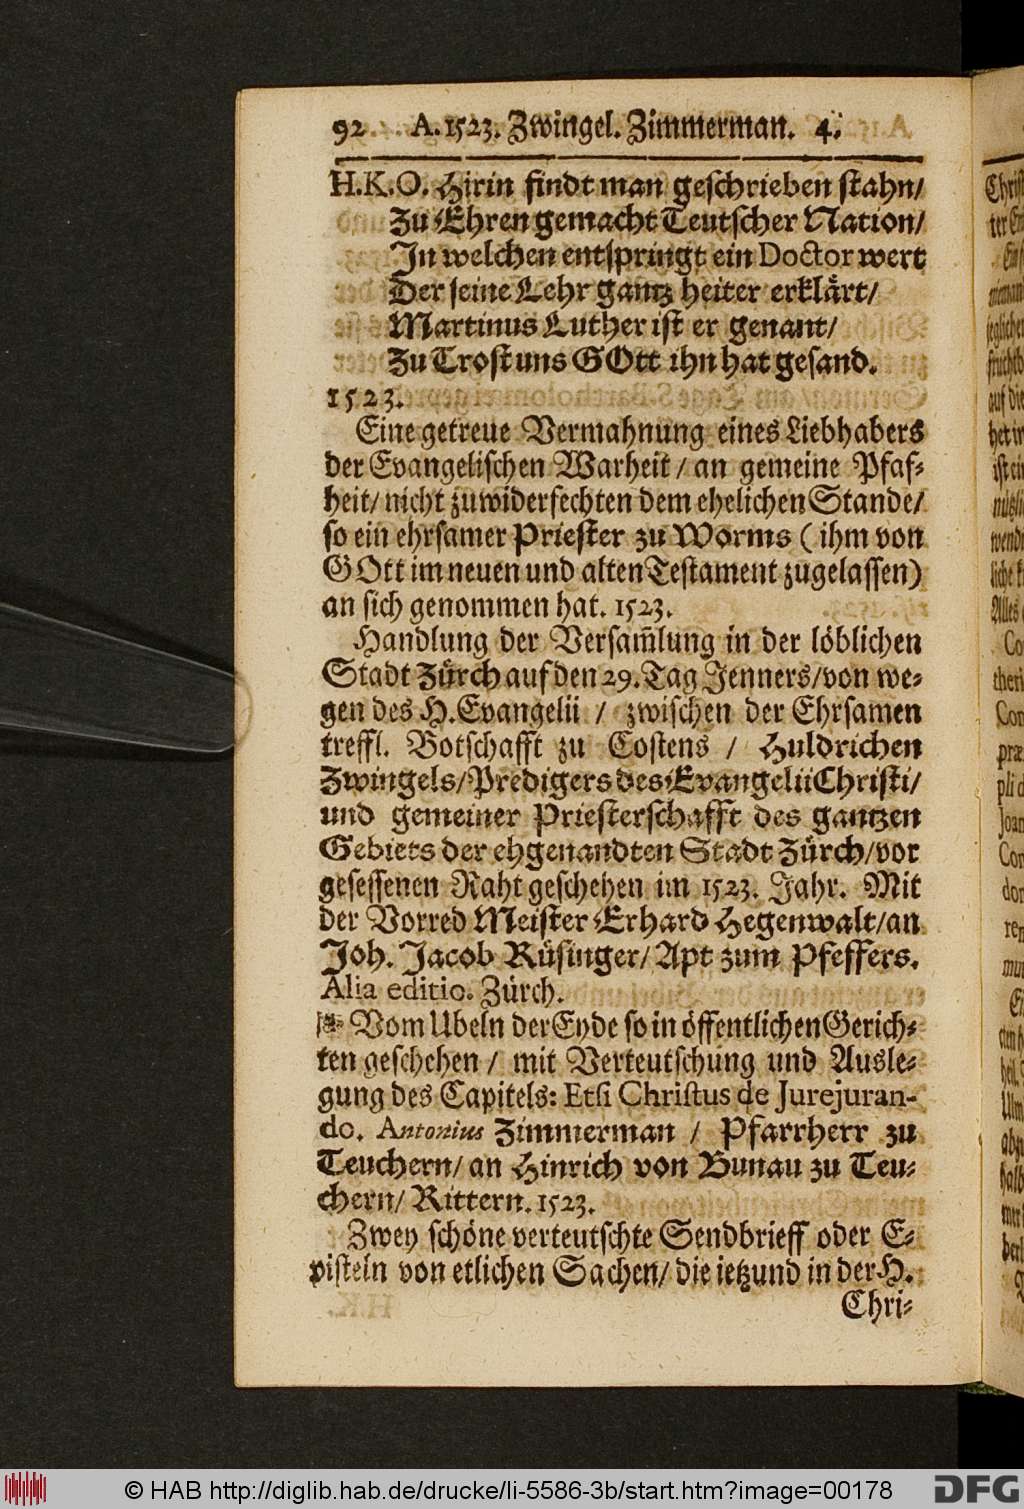 92 A. 1523. Zwingel. Zimmerman. 4.
H.K.O. Hirin findt man geschrieben stahn/
Zu Ehren gemacht Teutscher Nation/
In welchen entspringt ein Doctor wert
Der seine Lehr gantz heiter erklärt/
Martinus Luther ist er genant/
Zu Trost uns GOtt ihn hat gesand.
1523.
Eine getreue Vermahnung eines Liebhabers
der Evangelischen Warheit / an gemeine Pfaf-
heit/ nicht zuwiderfechten dem ehelichen Stande/
so ein ehrsamer Priester zu Worms ( ihm von
GOtt im neuen und alten Testament zugelassen)
an sich genommen hat. 1523.
Handlung der Versam̃lung in der löblichen
Stadt Zürch auf den 29. Tag Jenners/von we-
gen des H. Evangelii / zwischen der Ehrsamen
treffl. Botschafft zu Costens / Huldrichen
Zwingels/Predigers des Evangelii Christi/
und gemeiner Priesterschafft des gantzen
Gebiets der ehgenandten Stadt Zürch/vor
gesessenen Raht geschehen im 1523. Jahr. Mit
der Vorred Meister Erhard Hegenwalt/an
Joh. Jacob Rüsinger/ Apt zum Pfeffers.
Alia editio. Zürch.
Vom Ubeln der Eyde so in öffentlichen Gerich-
ten geschehen / mit Verteutschung und Ausle-
gung des Capitels: Etsi Christus de Jurejuran-
do. Antonius Zimmerman / Pfarrherr zu
Teuchern/ an Hinrich von Bunau zu Teu-
chern/ Rittern. 1523.
Zwey schöne verteutschte Sendbrieff oder E-
pisteln von etlichen Sachen/ die ietzund in der H.
Chri-
© HAB http://diglib.hab.de/drucke/li-5586-3b/start.htm?image=00178
DFG